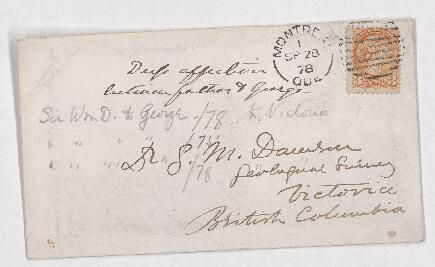 MONTREAL
1
SP 28
78
QUE
Deep affection
between father & George
Sir Wm D. to George /78 to Victoria
" " " " /78
Dr G. M. Dawson
Geological Survey
Victoria
British Columbia